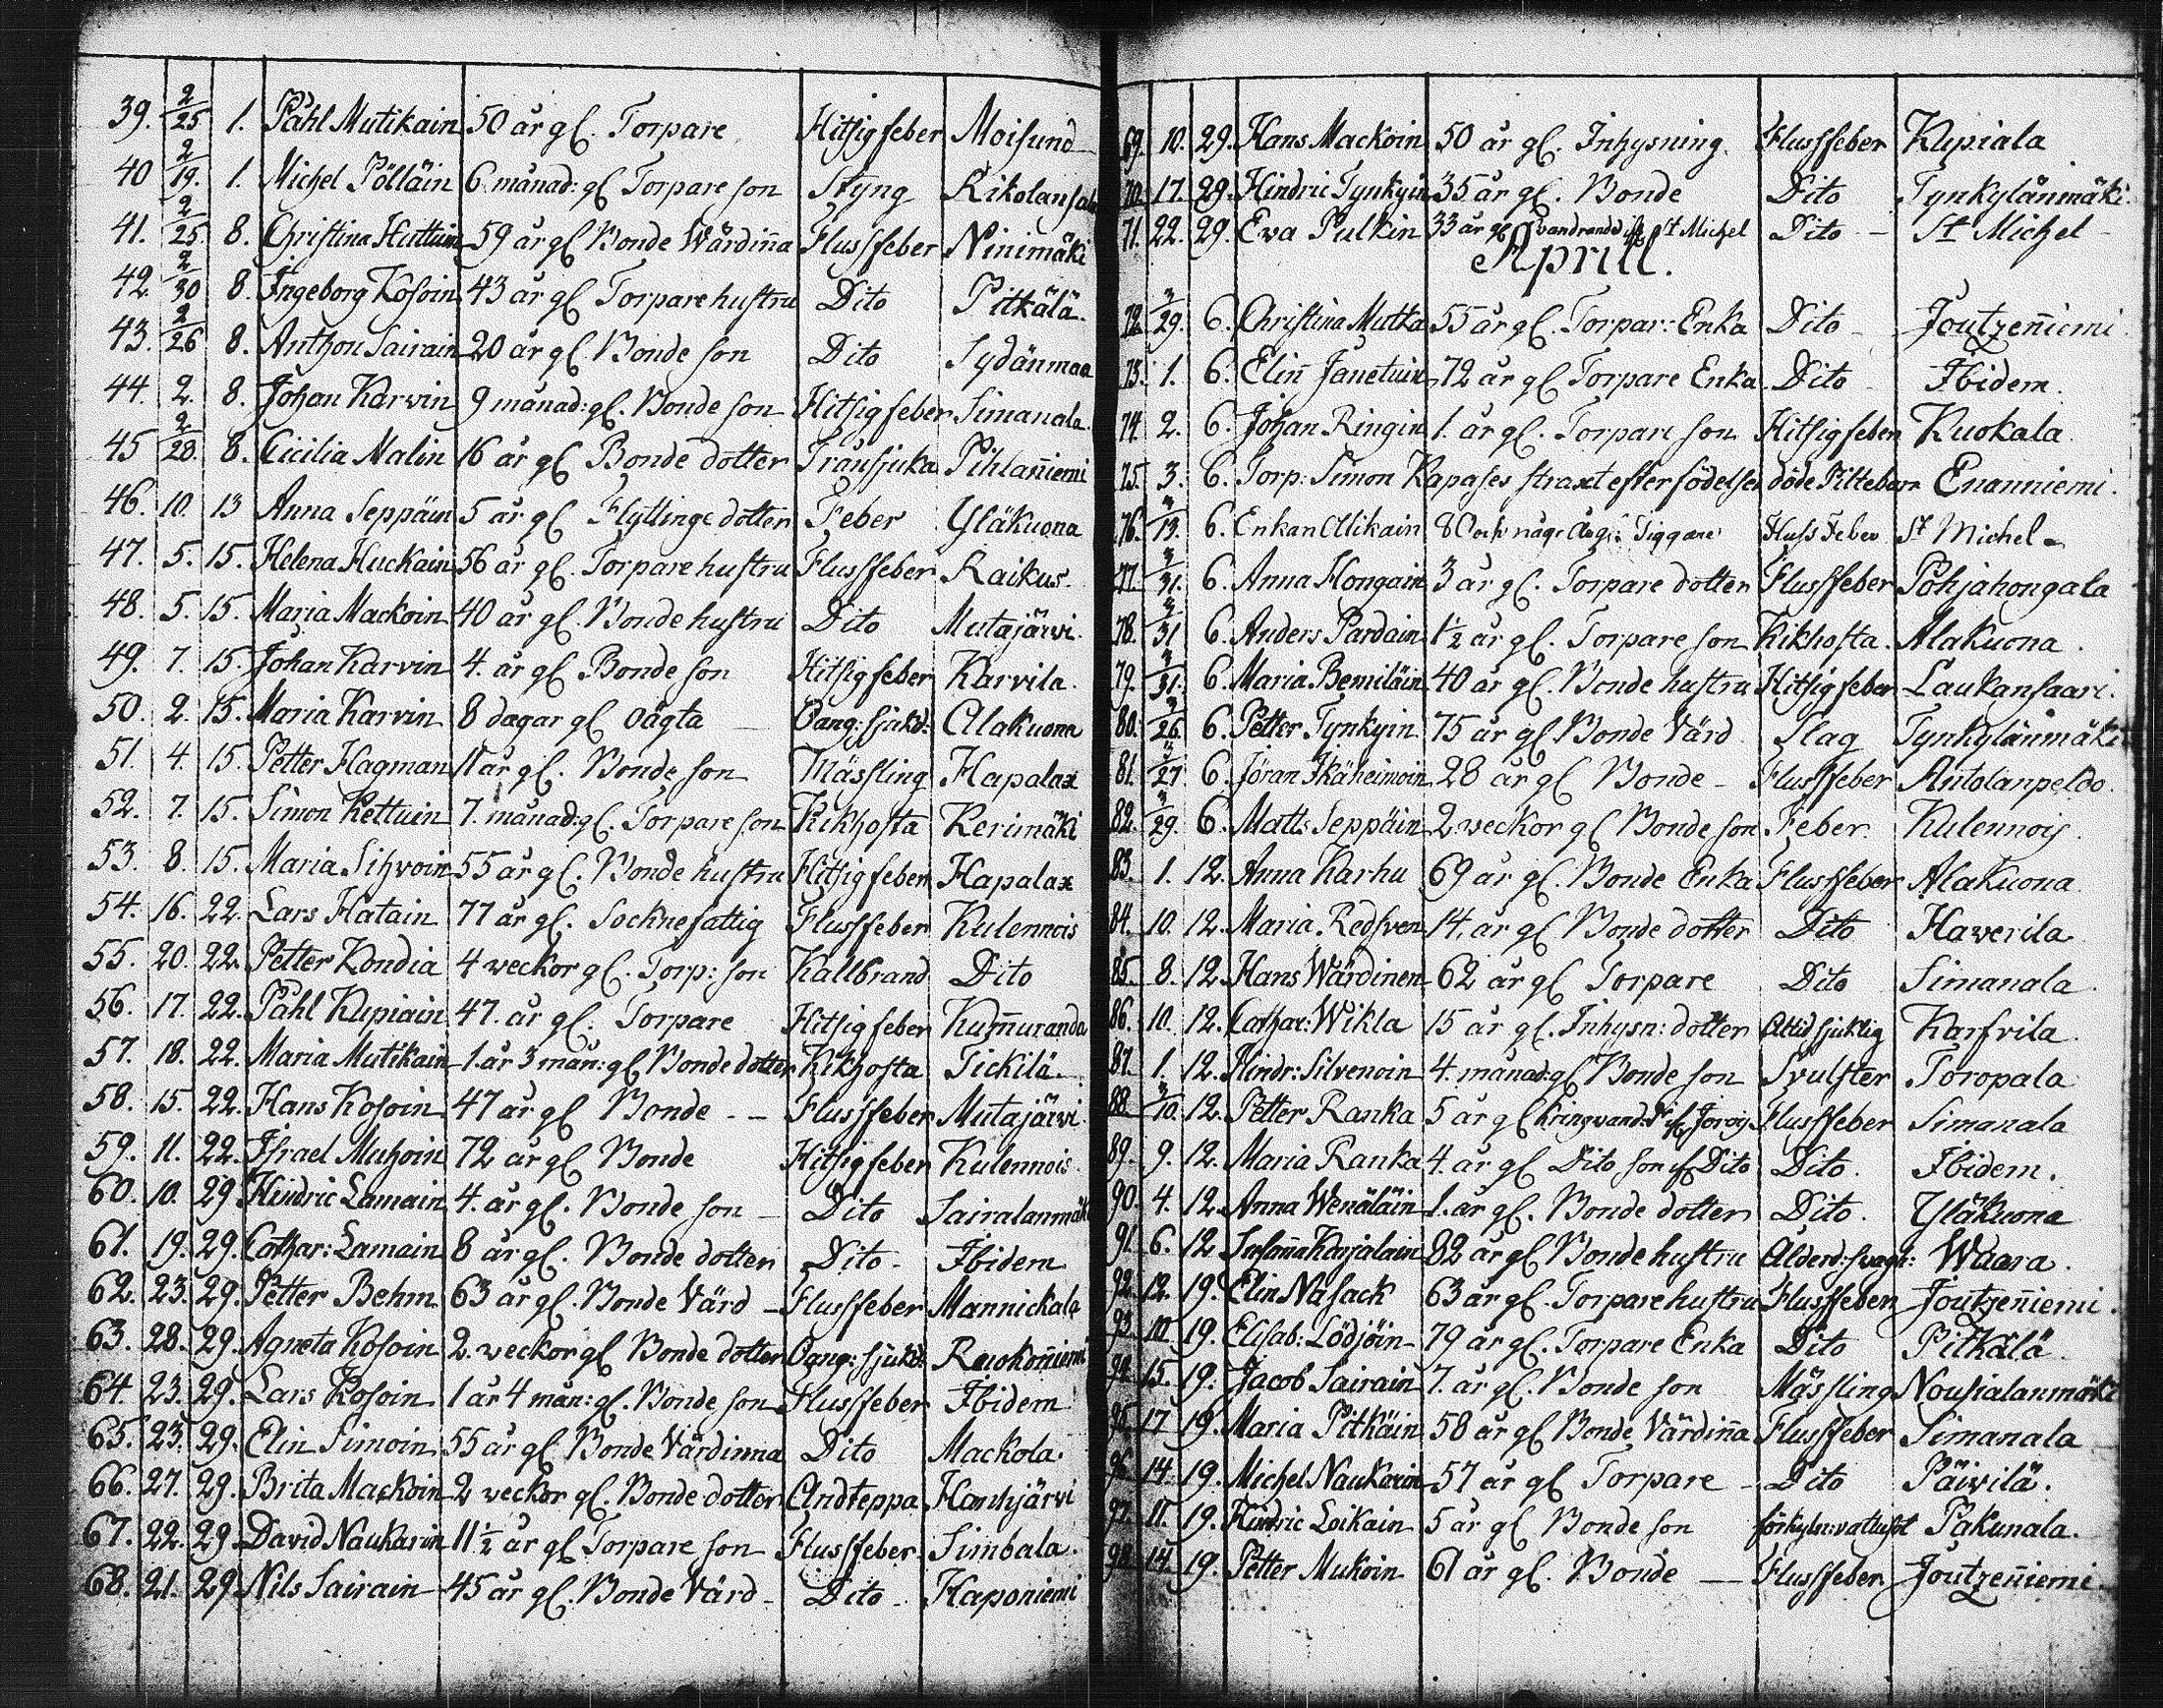 39. 2/25 1. Påhl Mutikain 50 år gl. Torpare Hitsigfeber Moisund
40 2/19. 1. Michel Pölläin 6 månad: gl Torpare son Styng Rikolansalo
41. 2/25. 8. Christina Huttuin 59 år gl Bonde Wärdiña Flussfeber Ninimäki
42. 2/30 8. Ingeborg Kosoin 43 år gl Torpare hustru Dito Pitkälä.
43. 2/26 8. Anthon Sairain 20 år gl. Bonde son Dito Sydänmaa
44. 2. 8. Johan Karvin 9 månad: gl. Bonde son Hitsigfeber Simanala.
45 2/28. 8. Cicilia Malin 16 år gl Bonde dotter Trånsjuka Pihlañiemi
46. 10. 13 Anna Seppäin 5 år gl Flyttinge dotter Feber Yläkuona
47. 5. 15. Helena Huckain 56 år gl. Torpare hustru Flussfeber Raikus.
48. 5. 15. Maria Mackoin 40 år gl. Bonde hustru Dito Mutajärvi.
49. 7. 15. Johan Karvin 4. år gl Bonde son Hitsigfeber Karvila.
50. 2. 15. Maria Karvin 8 dagar gl oägta Oang: sjukd: Alakuona
51. 4. 15. Petter Hagman 11 år gl. Bonde son Mässling Hapalax
52. 7. 15. Simon Kettuin 7. månad: gl. Torpare son Kikhosta Kerimäki
53. 8. 15. Maria Sihvoin 55 år gl. Bonde hustru Hitsigfeber Hapalax
54. 16. 22. Lars Hatain 77 år gl. Socknefattig Flussfeber Kulennois
55. 20. 22. Petter Kondia 4 weckor gl. Torp: son Kallbrand Dito
56. 17. 22. Påhl Kupiain 47. år gl. Torpare Hitsigfeber Kum̃uranda
57. 18. 22. Maria Mutikain 1. år 3 mån: gl Bonde dotter Kikhosta Tickilä.
58. 15. 22. Hans Kosoin 47 år gl Bonde Flussfeber Mutajärvi.
59. 11. 22. Israel Muhoin 72 år gl Bonde Hitsigfeber Kulennois.
60. 10. 29 Hindric Lamain 4. år gl. Bonde son Dito Sairalanmäki
61. 19. 29. Cathar: Lamain 8 år gl. Bonde dotter Dito Ibidem
62. 23. 29. Petter Behm 63 år gl. Bonde Värd Flussfeber Mannickala
63. 28. 29. Agneta Kosoin 2. weckor gl Bonde dotter Oang: sjukd: Ruokoñiemi
64. 23. 29. Lars Kosoin 1 år 4 mån: gl. Bonde son Flussfeber Ibidem
65. 23. 29. Elin Simoin 55 år gl Bonde Värdinna Dito Mackola.
66. 27. 29. Brita Mackoin 2 weckor gl. Bonde dotter Andteppa Hanhjärvi
67. 22. 29. David Naukarin 11 1/2 år gl Torpare son Flussfeber Simbala.
68. 21. 29. Nils Sairain 45 år gl. Bonde Värd Dito Haponiemi
69. 10. 29. Hans Mackoin 50 år gl. Inhysning. Flussfeber Kupiala
70. 17. 29. Hindric Tynkyin 35 år gl. Bonde Dito Tynkylänmäki.
71. 22. 29. Eva Pulkin 33 år gl vandrande ifr St Michel Dito St Michel
Aprill.
72. 3/29. 6. Christina Mutka 55 år gl. Torpar: Enka Dito Joutzeñiemi
73. 1. 6. Eliñ Janetuin 72 år gl Torpare Enka Dito Ibidem.
74 2. 6. Johan Ringin 1. år gl. Torpare son Hitsigfeber Kuokala.
75. 3. 6. Torp: Simon Kapases straxt efter födelsen döde Piltebarn Enanniemi.
76. 3/13. 6. Enkan Alikain 80 och någr år g: Tiggare Fluss Feber St Michel
77. 3/31. 6. Anna Hongain 3 år gl. Torpare dotter Flussfeber Pohjahongala
78. 3/31 6. Anders Pardain 1 1/2 år gl. Torpare son Kikhosta. Alakuona.
79. 3/31. 6. Maria Bemiläin 40 år gl. Bonde hustru Hitsigfeber Laukansaari.
80. 3/26 6. Petter Tynkyin 75 år gl Bonde Värd Slag Tynkylänmäki
81. 3/27 6. Jöran Ikäheimoin 28 år gl Bonde Flussfeber Antolanpeldo.
82. 3/29. 6. Matts Seppäin 2 weckor gl Bonde son Feber Kulennois.
83. 1. 12. Anna Karhu 69 år gl. Bonde Enka Flussfeber Alakuona.
84. 10. 12. Maria Redsven 14. år gl Bonde dotter Dito Haverila
85. 8. 12. Hans Wärdinen 62 år gl Torpare Dito Simanala.
86. 10. 12. Cathar: Wikla 15 år gl. Inhysn: dotter Altid sjuklig Karfvila.
87. 1. 12. Hindr: Silvenoin 4. månad: gl Bonde son Svulster Toropala
88. 3/10. 12. Petter Ranka 5 år gl kringvand: ifr Jorois Flussfeber Simanala
89. 9. 12. Maria Ranka 4. år gl Dito son ifr Dito Dito. Ibidem.
90. 4. 12. Anna Wenäläin 1. år gl. Bonde dotter Dito. Yläkuona
91. 6. 12 Susañа Karjalain 82 år gl Bonde hustru Ålderd: svagh: Waara.
92. 12. 19. Elin Nasack 63 år gl. Torpare hustru Flussfeber Joutzeñiemi.
93. 10 19. Elisab: Lödjöin 79 år gl. Torpare Enka Dito Pitkälä.
94. 15. 19. Jacob Sairain 7. år gl. Bonde son Mässling Nousialanmäki
95. 17 19. Maria Pitkäin 58 år gl Bonde Värdiña Flussfeber Simanala
96. 14. 19. Michel Naukarin 57 år gl Torpare Dito Päivilä.
97. 11. 19. Hindric Loikain 5 år gl Bonde son Pakunala.
98. 14. 19. Petter Mukoin 61 år gl. Bonde Flussfeber Joutzeñiemi.